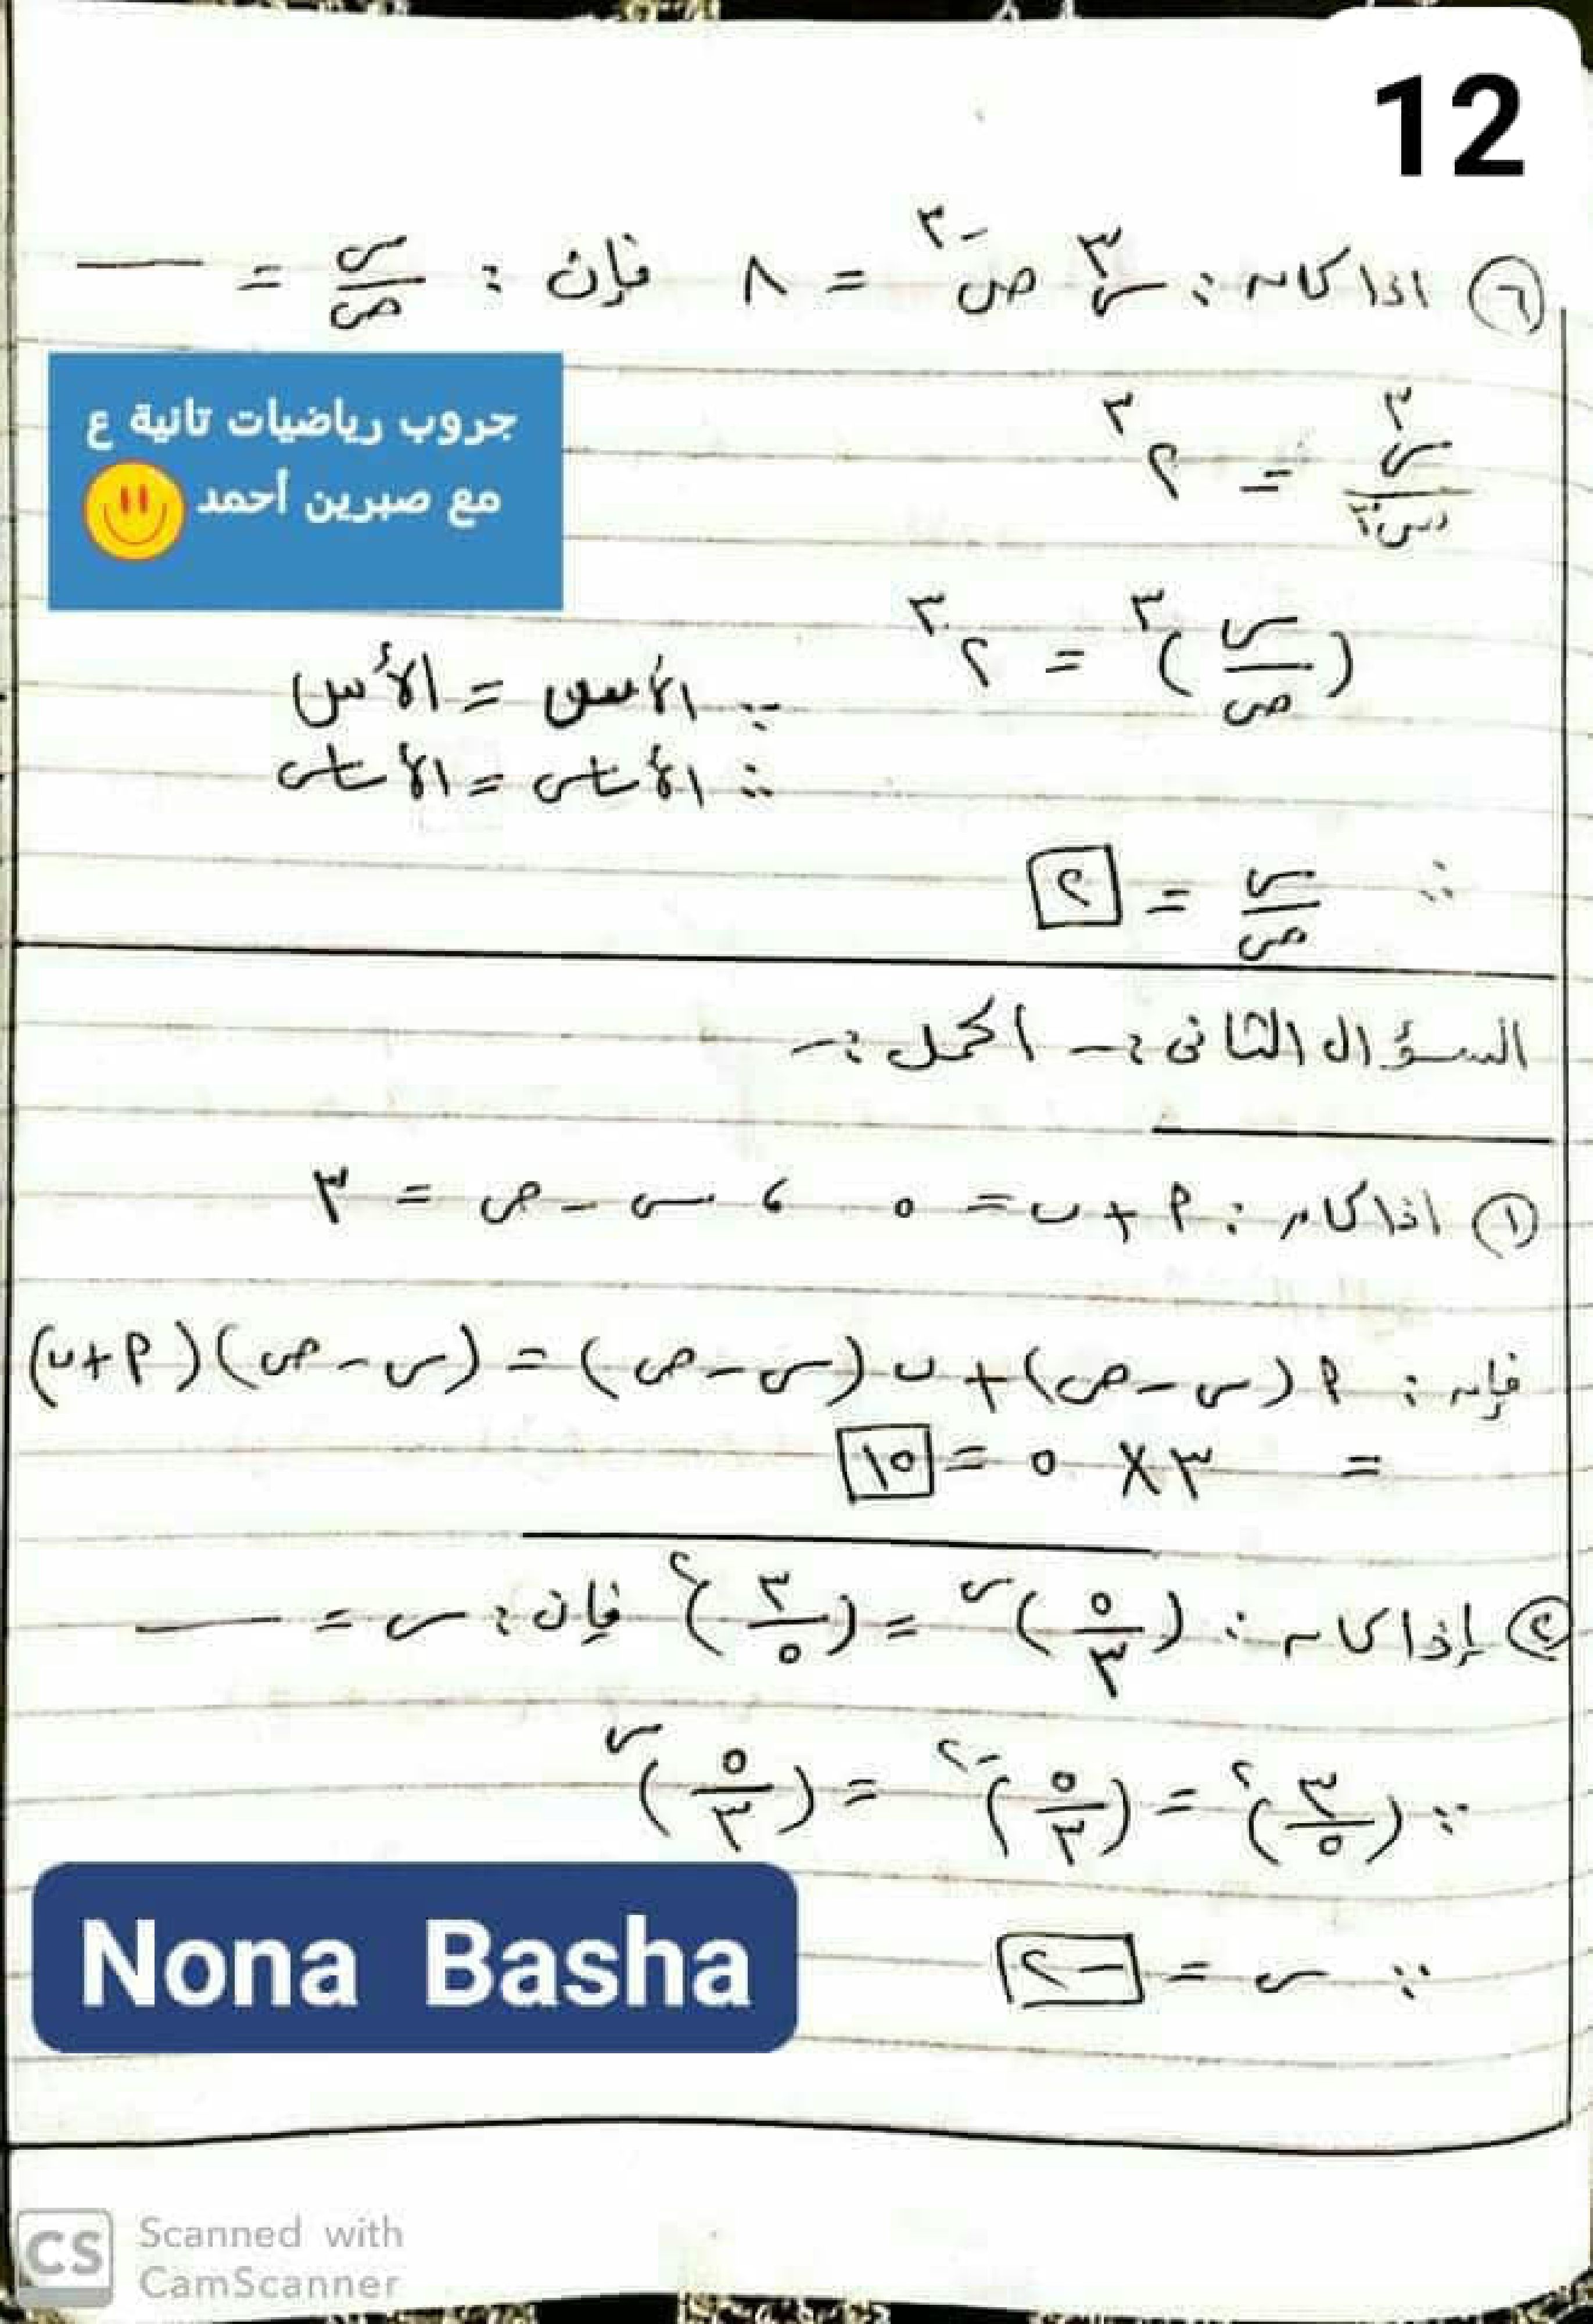 12
٦ اذا كان : س٣ ص-٣ = ٨ فإن : س/ص = ــــ
جروب رياضيات تانية ع
مع صبرين أحمد
س٣/ص٣ = ٢٣
(س/ص)٣ = ٢٣
∵ الأس = الأس
∴ الأساس = الأساس
∴ س/ص = ٢
السؤال الثانى :- اكمل :-
١ اذا كان : P + ب = ٥ ، س - ص = ٣
فإن : P (س - ص) + ب (س - ص) = (س - ص) (P + ب)
= ٣ × ٥ = ١٥
٢ إذا كان : (٥/٣)س = (٣/٥)٢ فإن : س = ــــ
∵ (٣/٥)٢ = (٥/٣)-٢ = (٥/٣)س
∴ س = -٢
Nona Basha
CS Scanned with
CamScanner